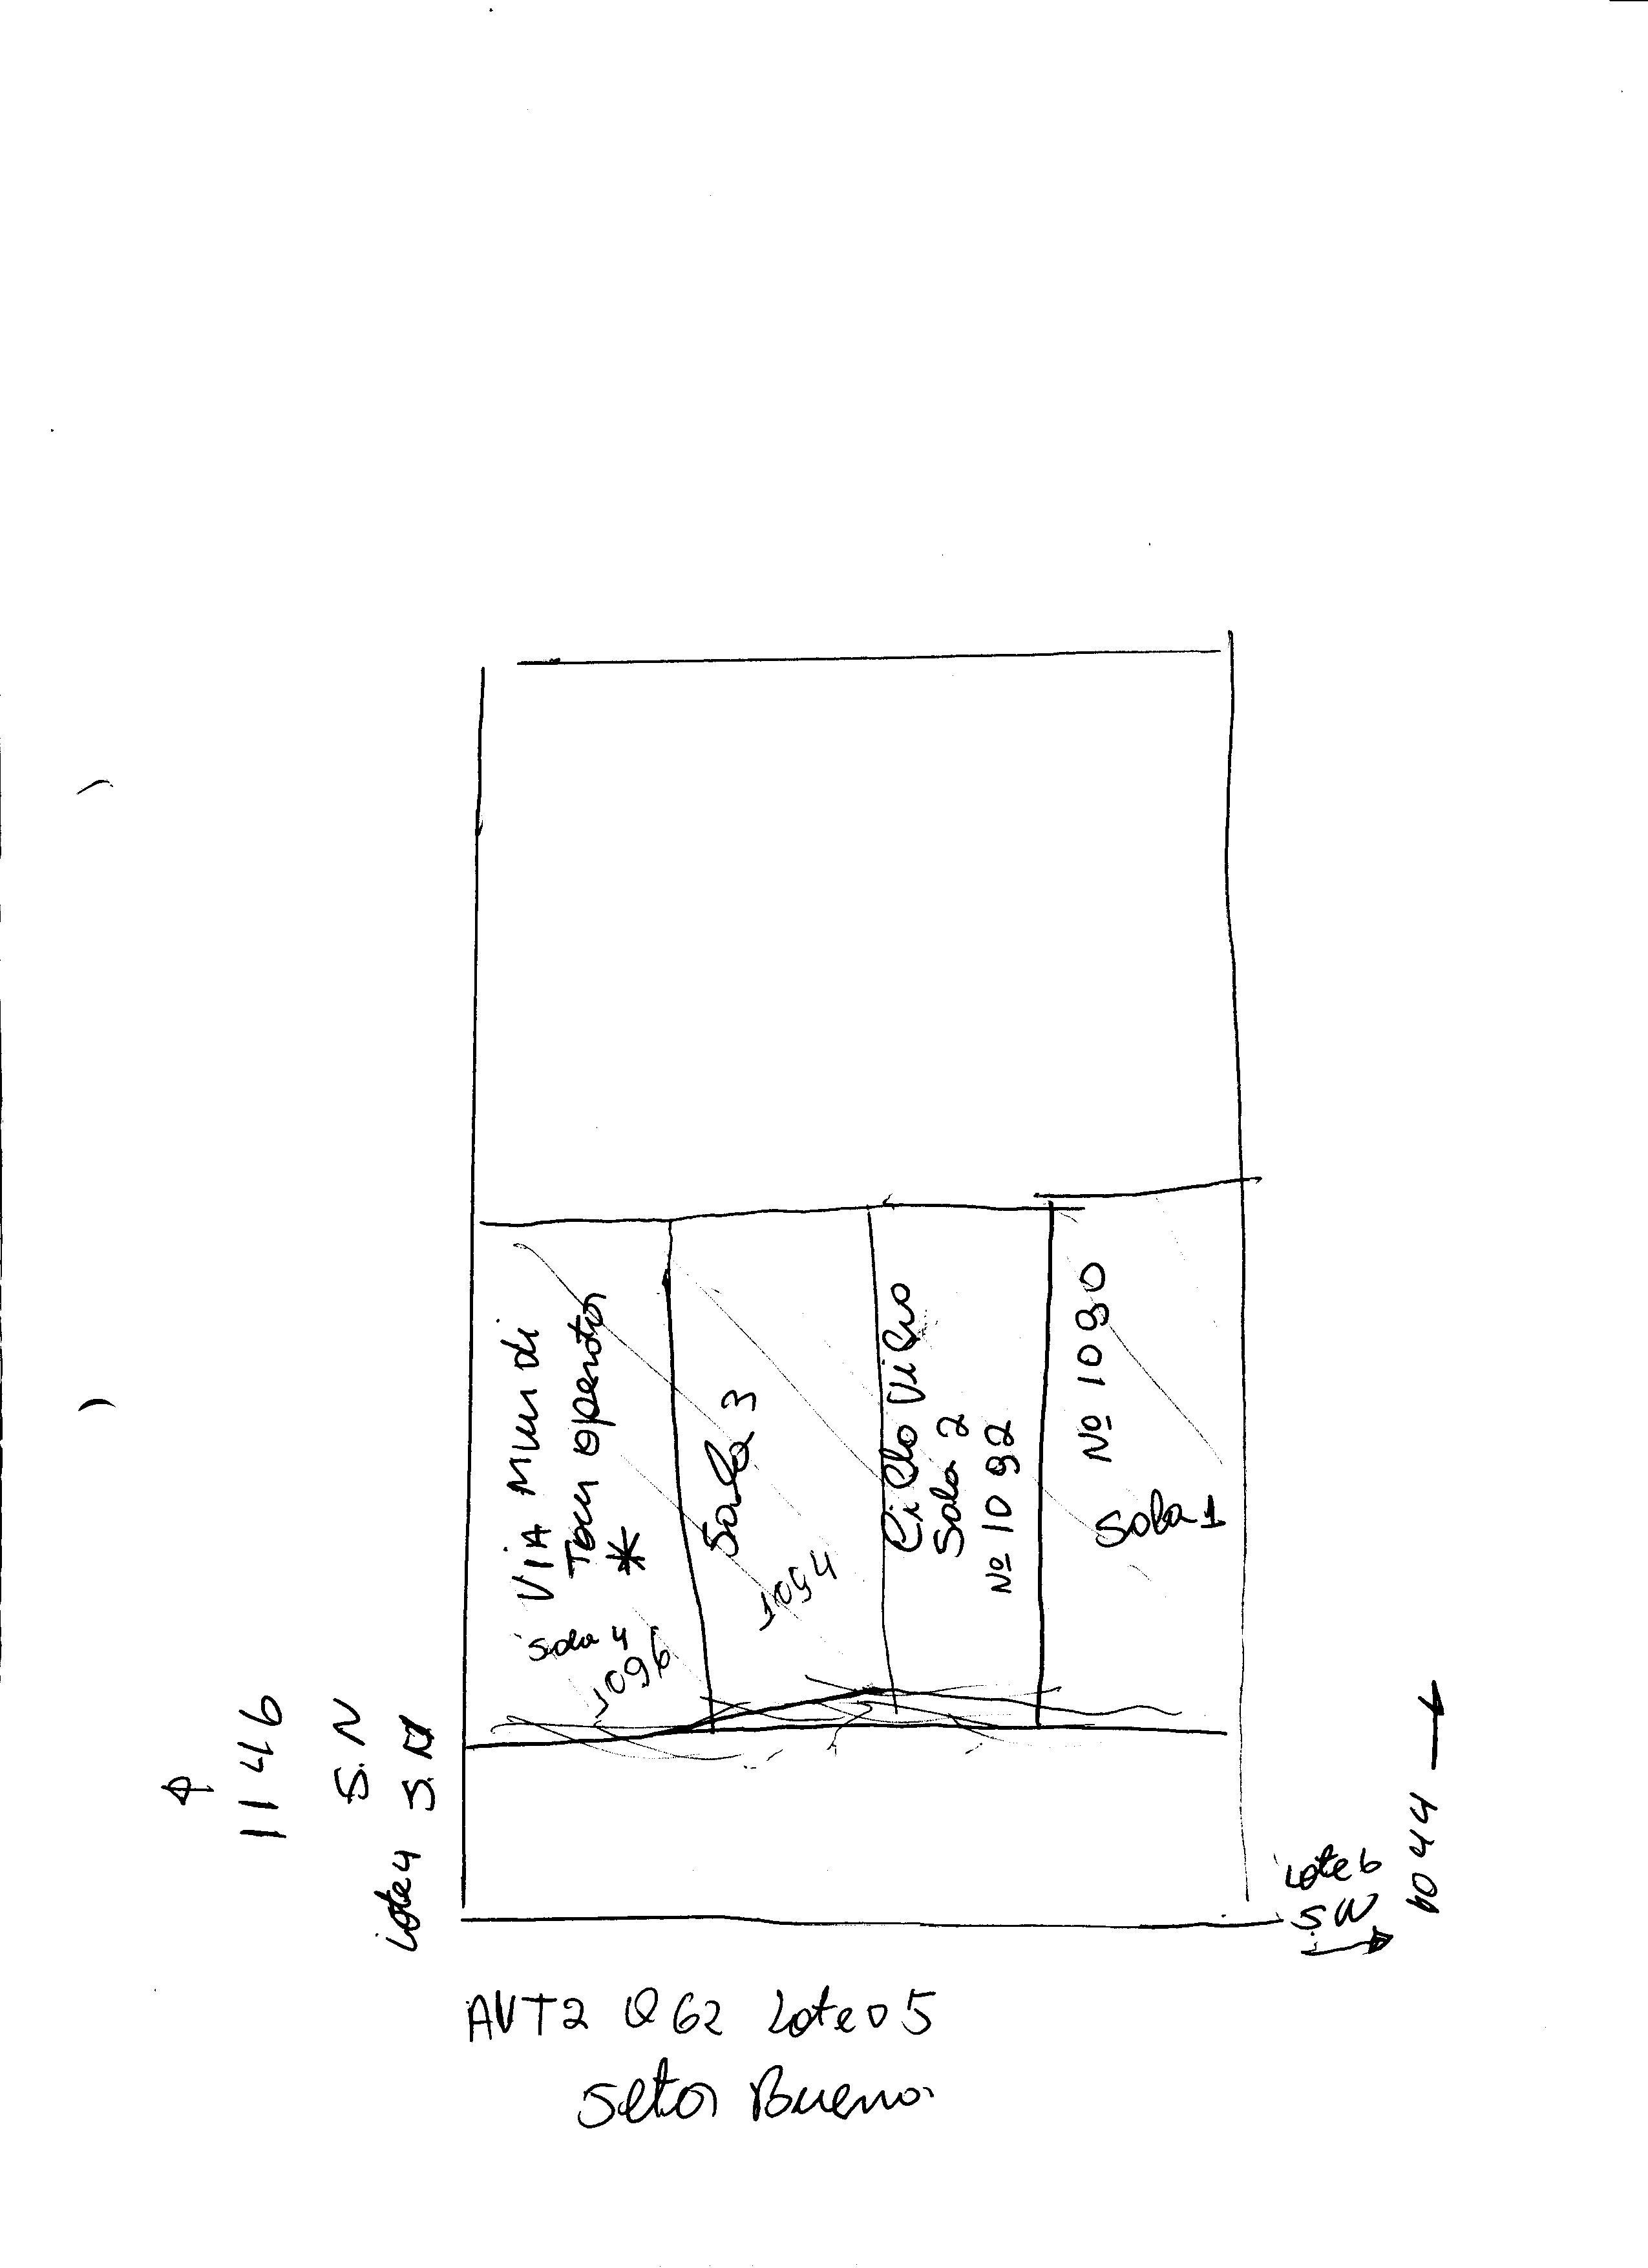 VIA Mundi
Tour Operator
*
Sala 4
1096
Sala 3
1094
Ciclo Vico
Sala 2
Nº 1092
Nº 1090
Sala 1
1146
S.N
Lote 4 S.N
Lote 6
S N
1044
AVT2 Q62 Lote 05
Setor Bueno